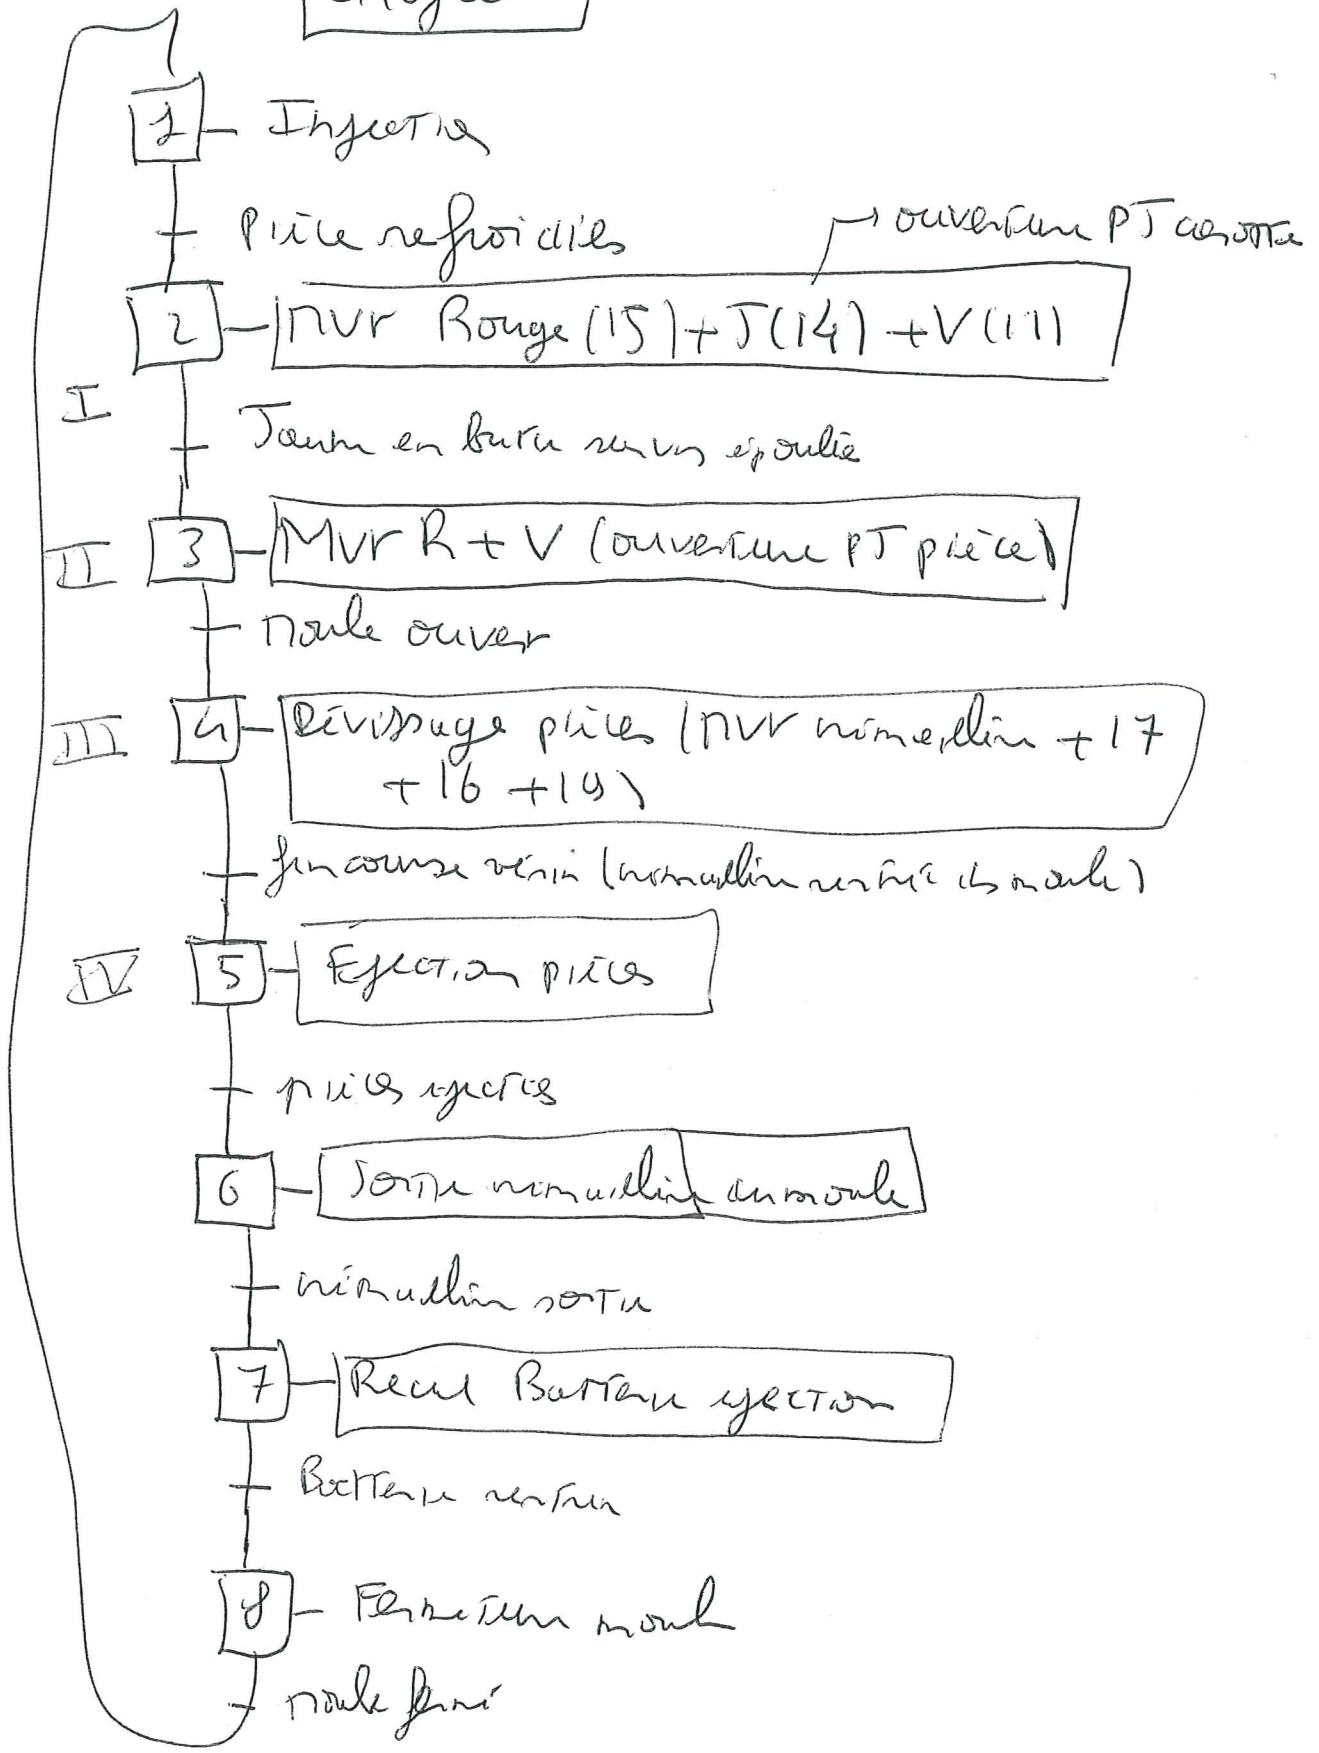 1 Injection
Pièce refroidies
ouverture PJ carotte
2 Mvr Rouge (15) + J(14) + V(11)
I
Jaune en butée sur vis épaulée
II
3 Mvr R + V (ouverture PJ pièce)
Moule ouver
III
4 Dévissage pièces (Mvr crémaillère + 17
+ 16 + 19)
fin course vérin (crémaillère rentrée ds moule)
IV
5 Ejection pièces
pièces ejectés
6 Sortie crémaillère du moule
crémaillère sortie
7 Recul Batterie ejection
Batterie rentrée
8 Fermeture moule
Moule fermé